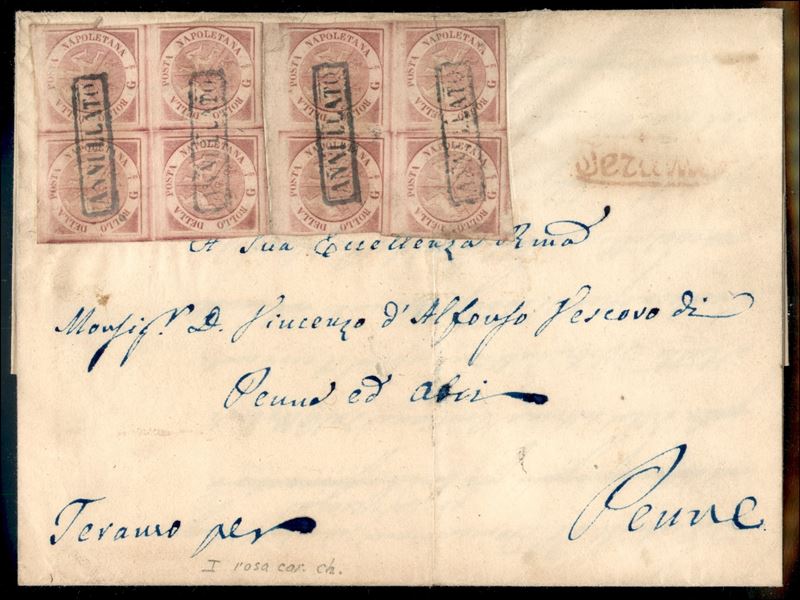 POSTA NAPOLETANA POSTA NAPOLETANA POSTA NAPOLETANA POSTA NAPOLETANA
G G G G
BOLLO DELLA BOLLO DELLA BOLLO DELLA BOLLO DELLA
ANNULLATO ANNULLATO ANNULLATO ANNULLATO
POSTA NAPOLETANA POSTA NAPOLETANA POSTA NAPOLETANA POSTA NAPOLETANA
G G G G
BOLLO DELLA BOLLO DELLA BOLLO DELLA BOLLO DELLA
A Sua Eccellenza Rma
Monsigr. D. Vincenzo d'Alfonso Vescovo di
Penne ed Atri
Teramo per Penne
I rosa car. ch.